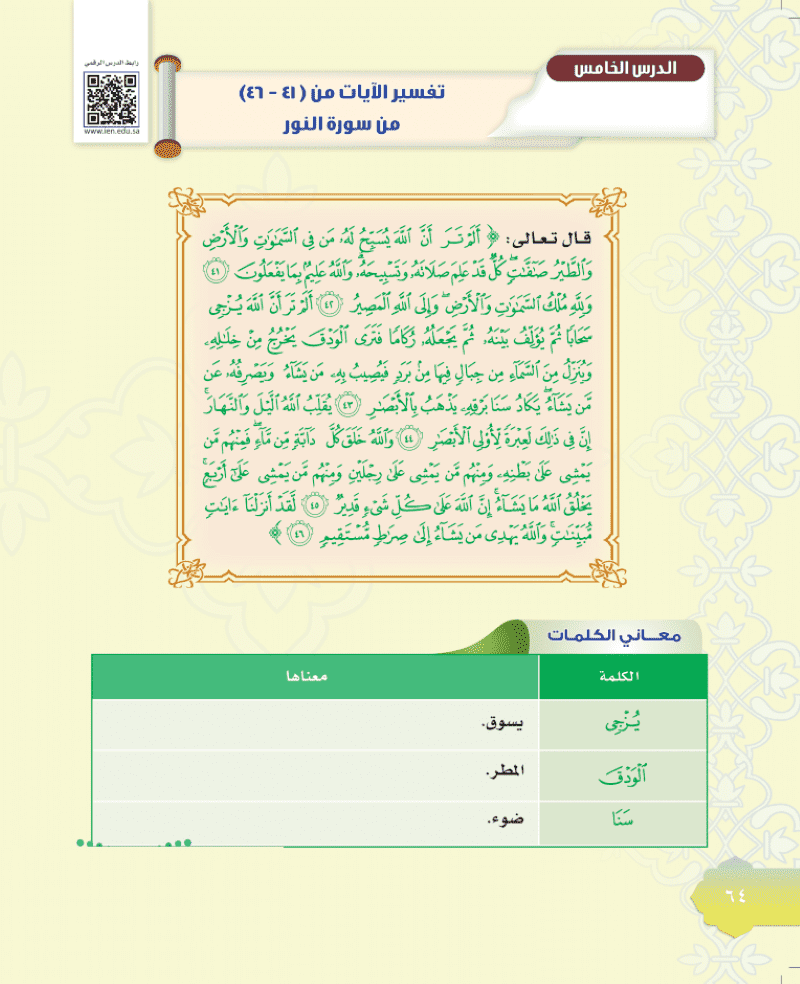 الدرس الخامس
تفسير الآيات من (٤١ - ٤٦)
من سورة النور
رابط الدرس الرقمي
www.ien.edu.sa
قال تعالى: ﴿ أَلَمْ تَرَ أَنَّ ٱللَّهَ يُسَبِّحُ لَهُۥ مَن فِي ٱلسَّمَٰوَٰتِ وَٱلْأَرْضِ
وَٱلطَّيْرُ صَٰٓفَّٰتٍۖ كُلٌّ قَدْ عَلِمَ صَلَاتَهُۥ وَتَسْبِيحَهُۥۗ وَٱللَّهُ عَلِيمٌۢ بِمَا يَفْعَلُونَ ٤١
وَلِلَّهِ مُلْكُ ٱلسَّمَٰوَٰتِ وَٱلْأَرْضِۖ وَإِلَى ٱللَّهِ ٱلْمَصِيرُ ٤٢ أَلَمْ تَرَ أَنَّ ٱللَّهَ يُزْجِي
سَحَابًا ثُمَّ يُؤَلِّفُ بَيْنَهُۥ ثُمَّ يَجْعَلُهُۥ رُكَامًا فَتَرَى ٱلْوَدْقَ يَخْرُجُ مِنْ خِلَٰلِهِۦ
وَيُنَزِّلُ مِنَ ٱلسَّمَآءِ مِن جِبَالٍ فِيهَا مِنۢ بَرَدٍ فَيُصِيبُ بِهِۦ مَن يَشَآءُ وَيَصْرِفُهُۥ عَن
مَّن يَشَآءُۖ يَكَادُ سَنَا بَرْقِهِۦ يَذْهَبُ بِٱلْأَبْصَٰرِ ٤٣ يُقَلِّبُ ٱللَّهُ ٱلَّيْلَ وَٱلنَّهَارَۚ
إِنَّ فِي ذَٰلِكَ لَعِبْرَةً لِّأُو۟لِي ٱلْأَبْصَٰرِ ٤٤ وَٱللَّهُ خَلَقَ كُلَّ دَآبَّةٍ مِّن مَّآءٍۖ فَمِنْهُم مَّن
يَمْشِي عَلَىٰ بَطْنِهِۦ وَمِنْهُم مَّن يَمْشِي عَلَىٰ رِجْلَيْنِ وَمِنْهُم مَّن يَمْشِي عَلَىٰٓ أَرْبَعٍۚ
يَخْلُقُ ٱللَّهُ مَا يَشَآءُۚ إِنَّ ٱللَّهَ عَلَىٰ كُلِّ شَيْءٍ قَدِيرٌ ٤٥ لَّقَدْ أَنزَلْنَآ ءَايَٰتٍ
مُّبَيِّنَٰتٍۚ وَٱللَّهُ يَهْدِي مَن يَشَآءُ إِلَىٰ صِرَٰطٍ مُّسْتَقِيمٍ ٤٦ ﴾
معـــاني الكلمـات
الكلمة معناها
يُزْجِي يسوق.
ٱلْوَدْقَ المطر.
سَنَا ضوء.
٦٤